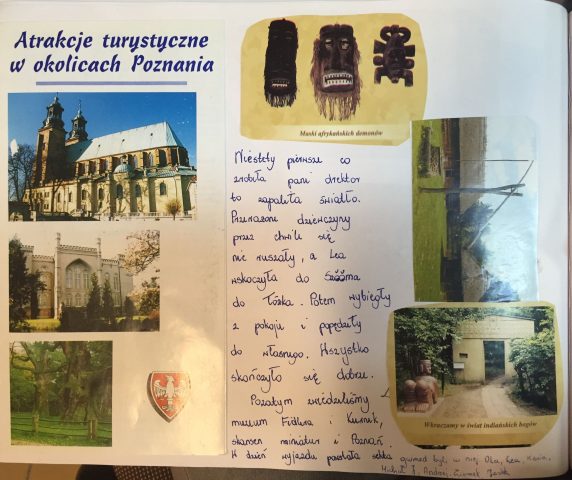 Atrakcje turystyczne
w okolicach Poznania
Maski afrykańskich demonów
Niestety pierwsze co
zrobiła pani drektor
to zapaliła światło.
Przerażone dziewczyny
przez chwilę się
nie ruszały, a Lea
wskoczyła do
do łóżka. Potem wybiegły
z pokoju i popędziły
do własnego. Wszystko
skończyło się dobrze.
Pozatym zwiedzaliśmy
muzeum Fidlera i Kurnik,
skansen miniatur i Poznań.
W dzień wyjazdu powstała sekta
gwiazd byli w niej Ola, Lea, Kasia,
Michał J. Andrzej,
Wkraczamy w świat indiańskich bogów